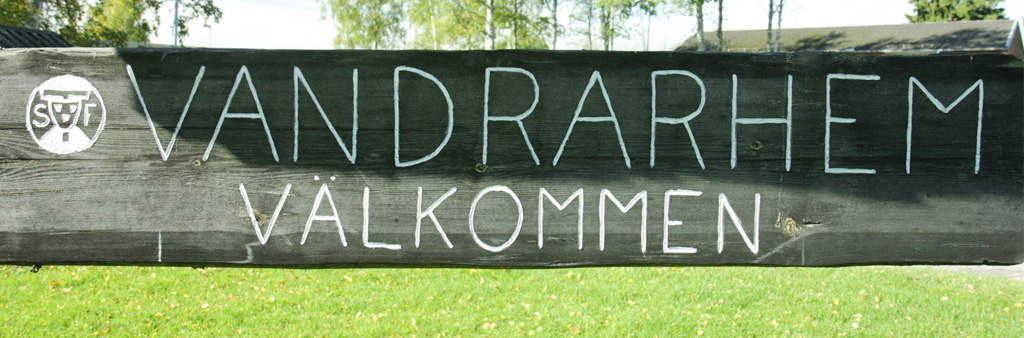 STF
VANDRARHEM
VÄLKOMMEN